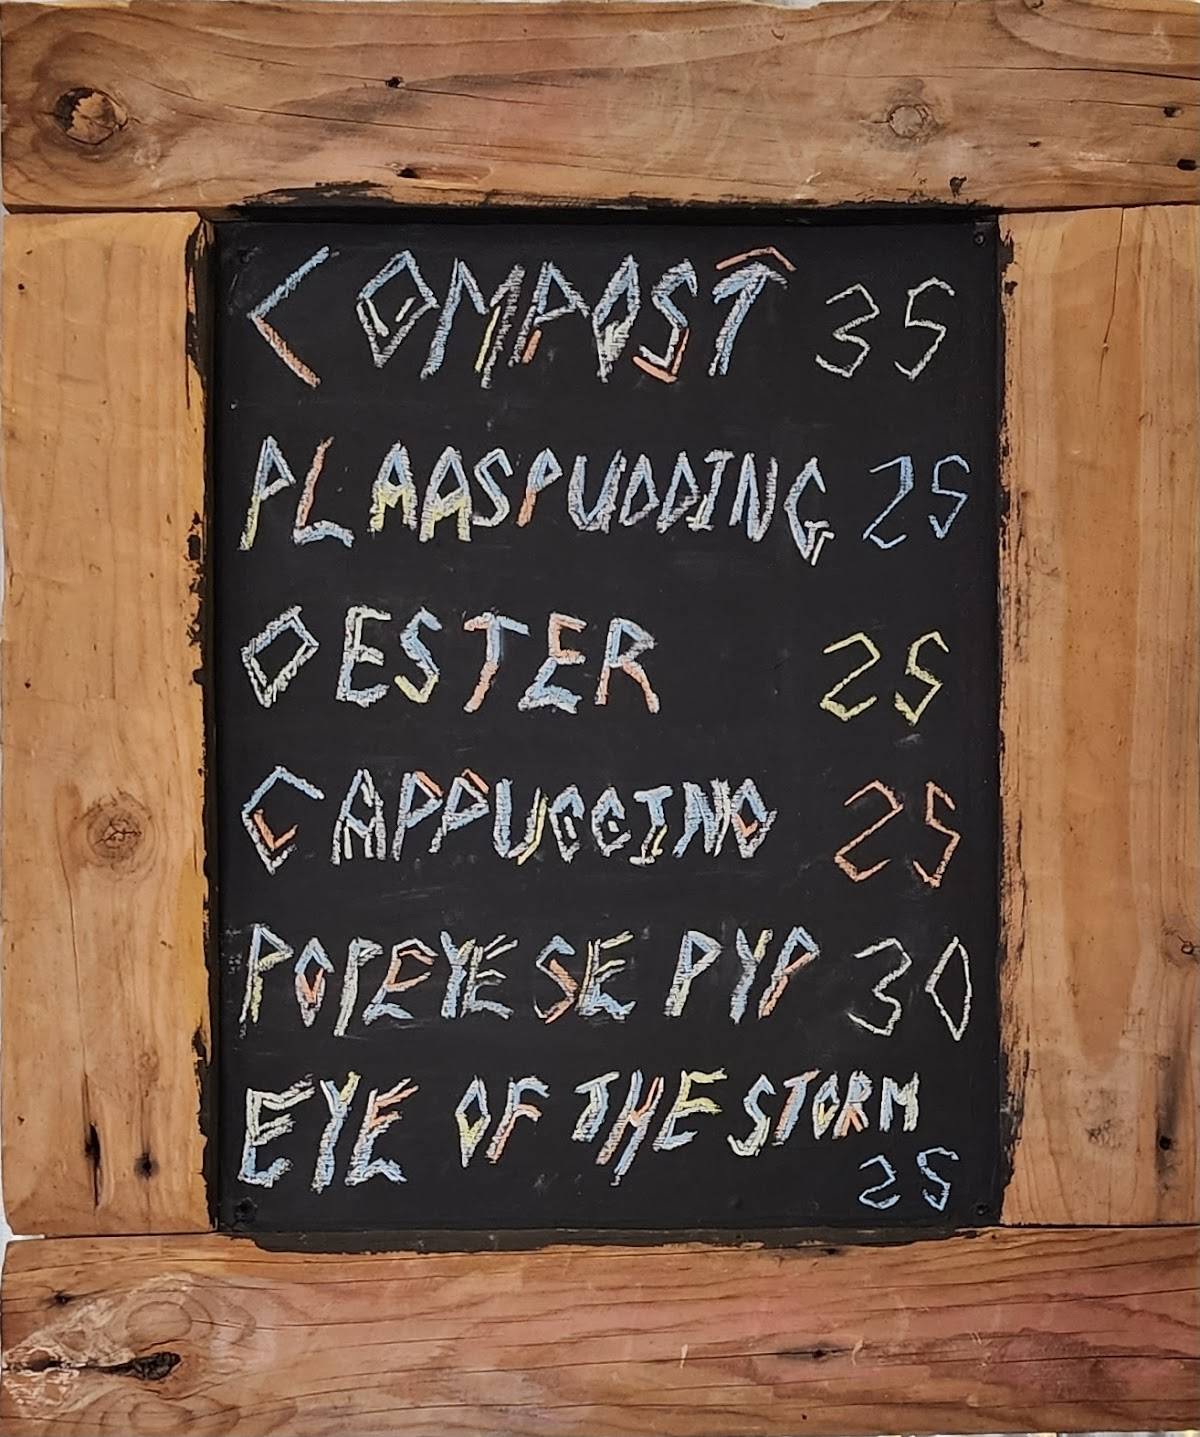 COMPOST 35
PLAASPUDDING 25
OESTER 25
CAPPUCCINO 25
POPEYE SE PYP 30
EYE OF THE STORM
25